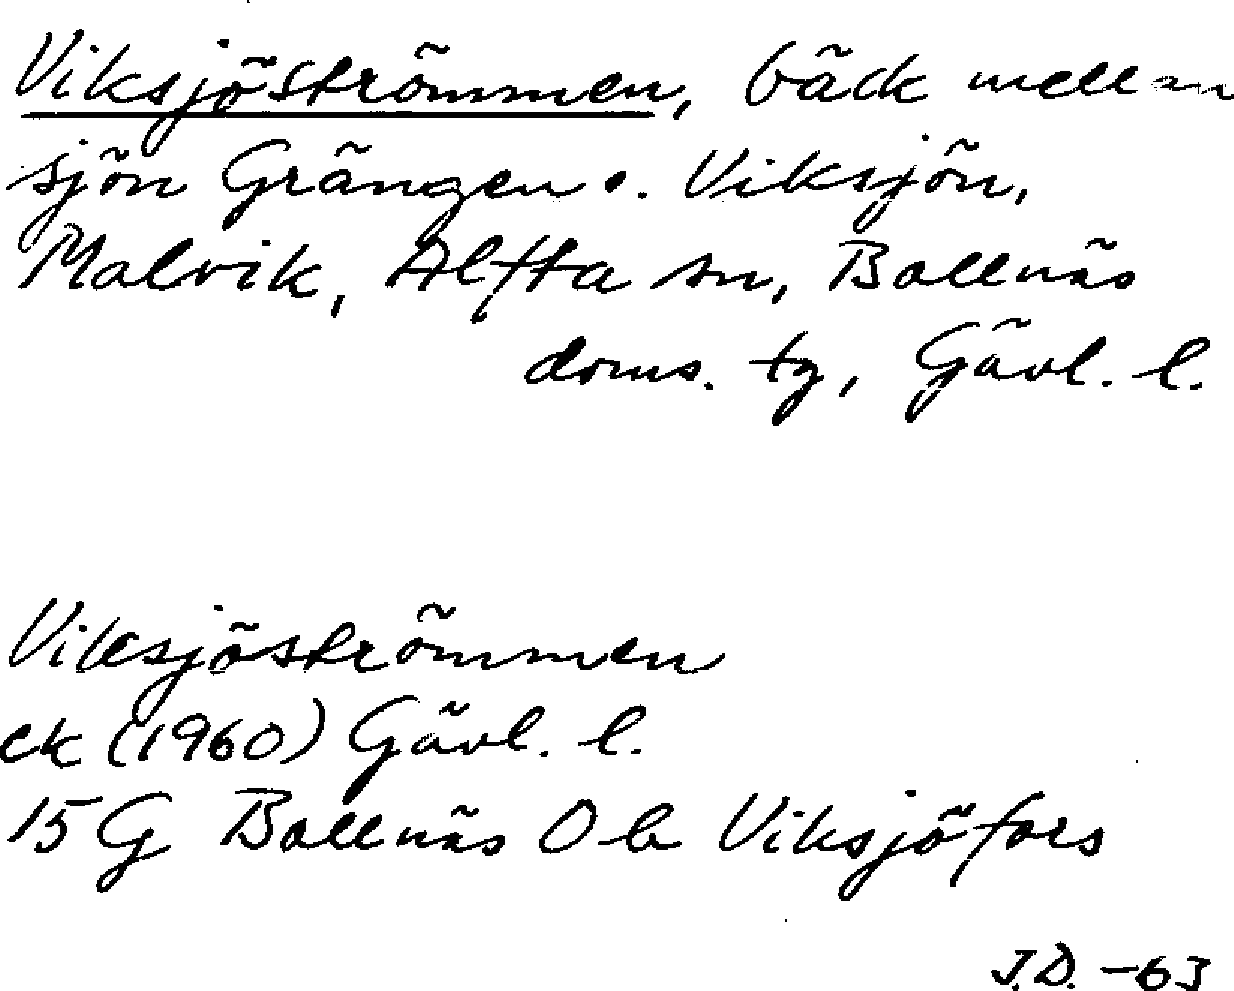 Viksjöströmmen, bäck mellan
sjön Grängen o. Viksjön,
Malvik, Alfta sn, Bollnäs
doms. tg, Gävl. l.
Viksjöströmmen
ek (1960) Gävl. l.
15G Bollnäs 0b Viksjöfors
J.D. -63